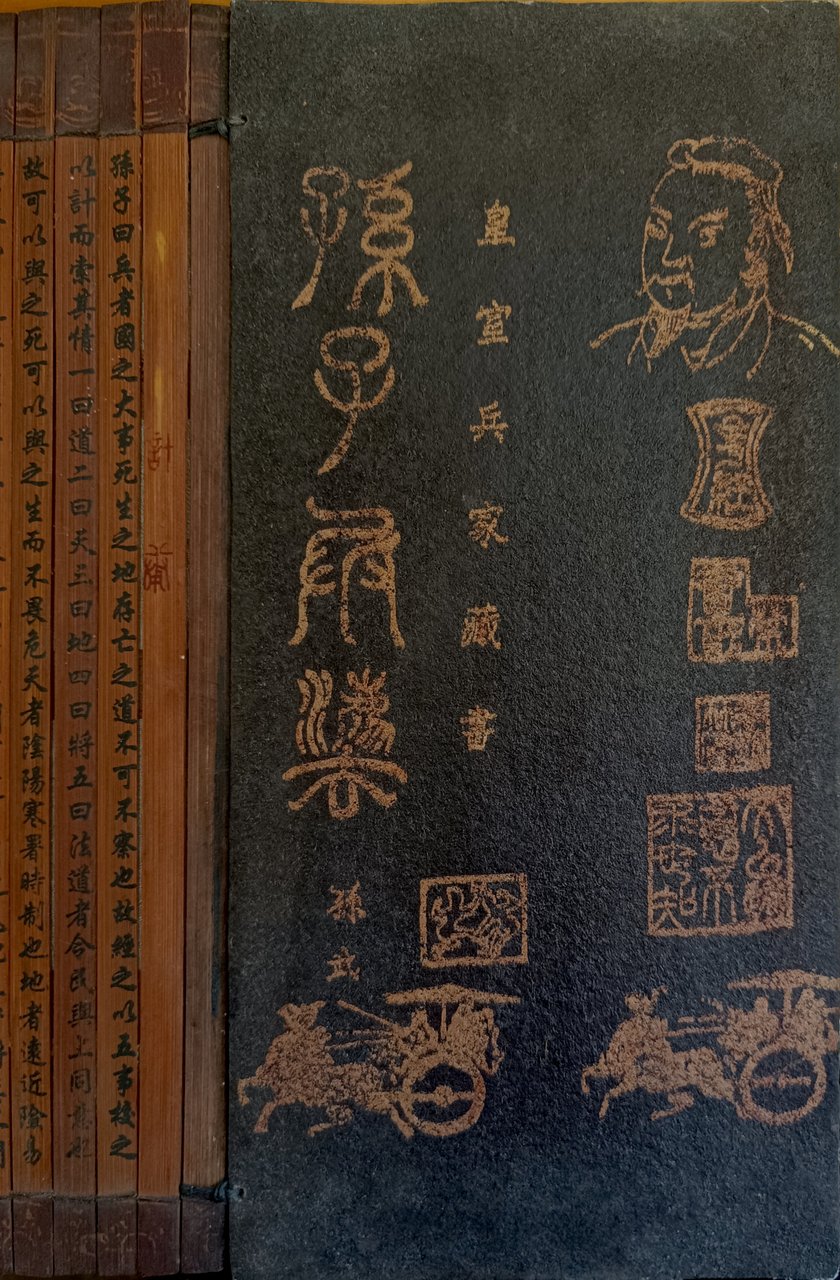 皇室兵家藏書
孫子兵法
孫武
計篇
孫子曰兵者國之大事死生之地存亡之道不可不察也故經之以五事校之
以計而索其情一曰道二曰天三曰地四曰將五曰法道者令民與上同意也
故可以與之死可以與之生而不畏危天者陰陽寒暑時制也地者遠近險易